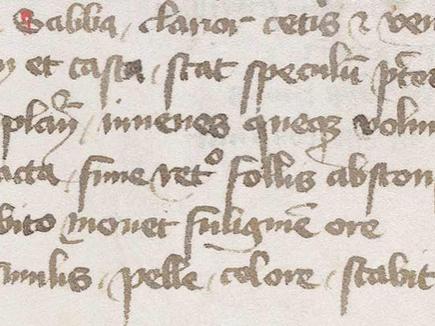 Sabba, clarior cetis ⁊ ven
et casta, stat speculū p̄
iuuenes queqꝫ volu
acta, fune retº follis abston
bito mouet fuliginē ore
similis, pelle, colore, stabit